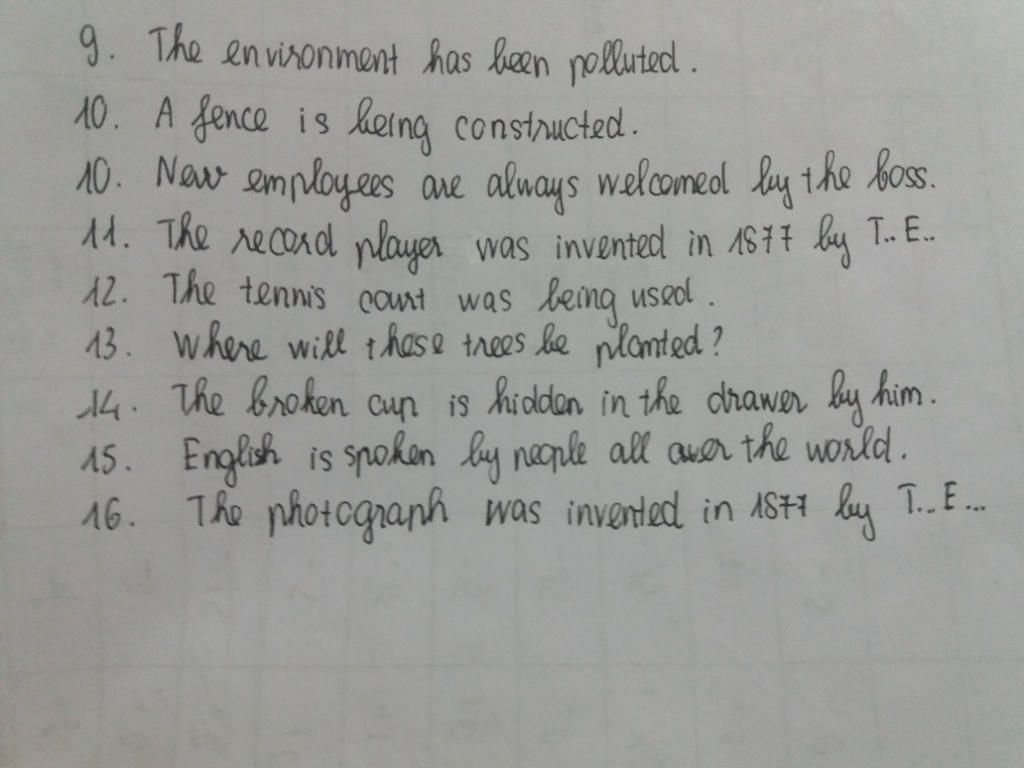 9. The environment has been polluted.
10. A fence is being constructed.
10. New employees are always welcomed by the boss.
11. The record player was invented in 1877 by T.. E..
12. The tennis court was being used.
13. Where will these trees be planted?
14. The broken cup is hidden in the drawer by him.
15. English is spoken by people all over the world.
16. The photograph was invented in 1877 by T... E...